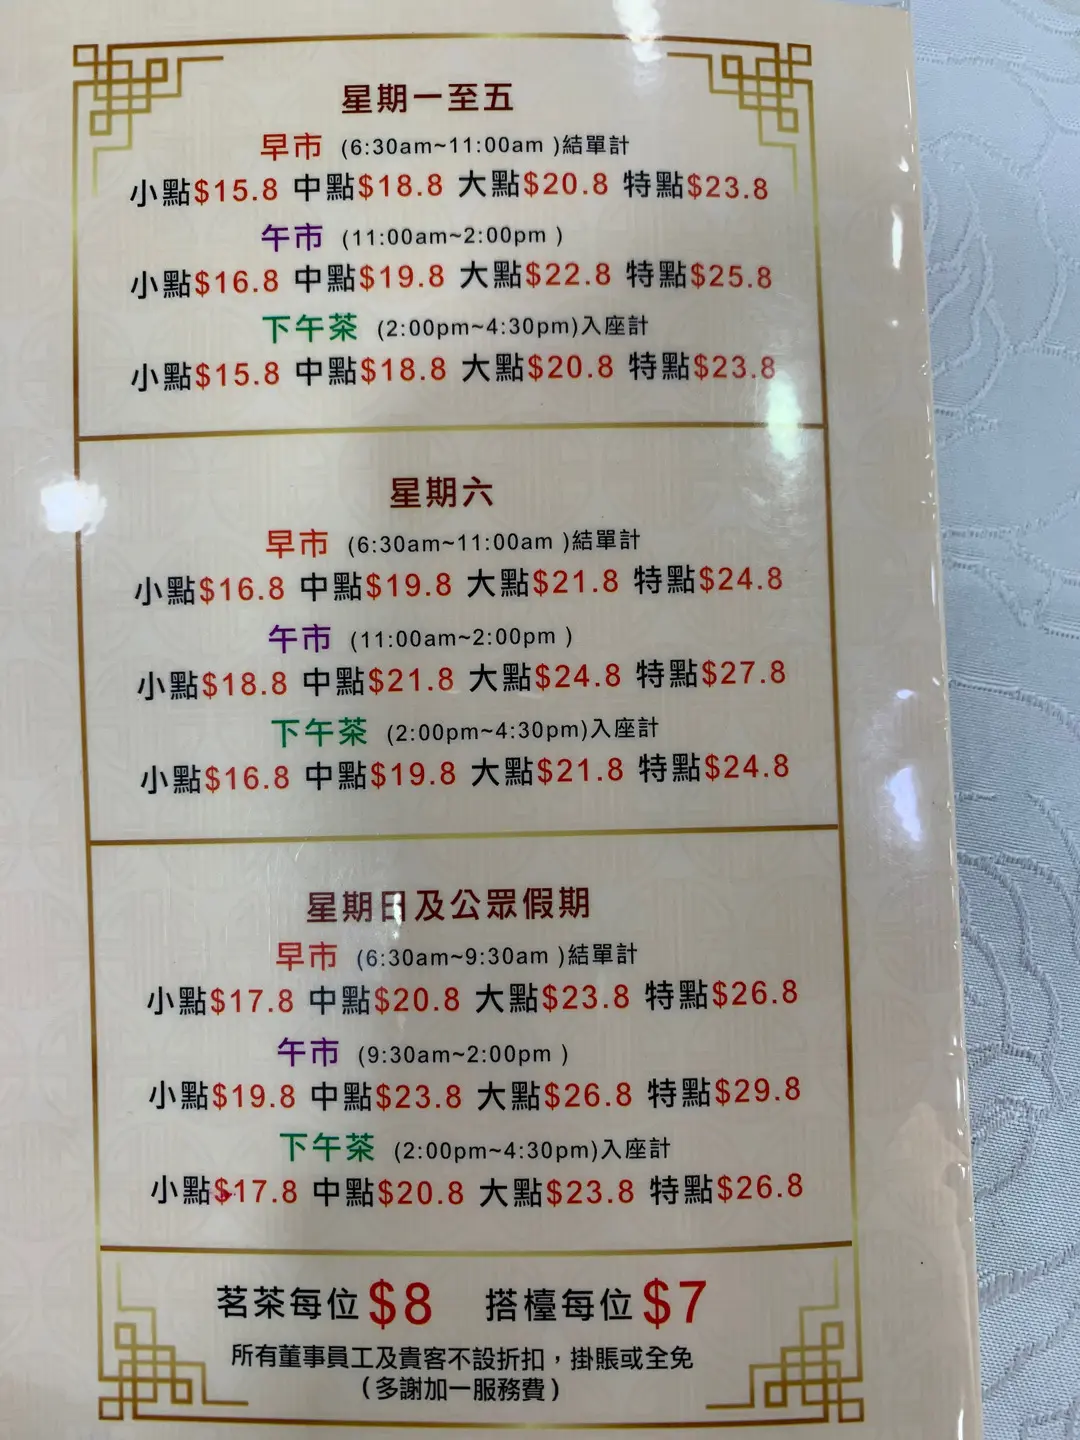 星期一至五
早市 (6:30am~11:00am )結單計
小點$15.8 中點$18.8 大點$20.8 特點$23.8
午市 (11:00am~2:00pm )
小點$16.8 中點$19.8 大點$22.8 特點$25.8
下午茶 (2:00pm~4:30pm)入座計
小點$15.8 中點$18.8 大點$20.8 特點$23.8
星期六
早市 (6:30am~11:00am )結單計
小點$16.8 中點$19.8 大點$21.8 特點$24.8
午市 (11:00am~2:00pm )
小點$18.8 中點$21.8 大點$24.8 特點$27.8
下午茶 (2:00pm~4:30pm)入座計
小點$16.8 中點$19.8 大點$21.8 特點$24.8
星期日及公眾假期
早市 (6:30am~9:30am )結單計
小點$17.8 中點$20.8 大點$23.8 特點$26.8
午市 (9:30am~2:00pm )
小點$19.8 中點$23.8 大點$26.8 特點$29.8
下午茶 (2:00pm~4:30pm)入座計
小點$17.8 中點$20.8 大點$23.8 特點$26.8
茗茶每位$8 搭檯每位$7
所有董事員工及貴客不設折扣，掛賬或全免
（多謝加一服務費）